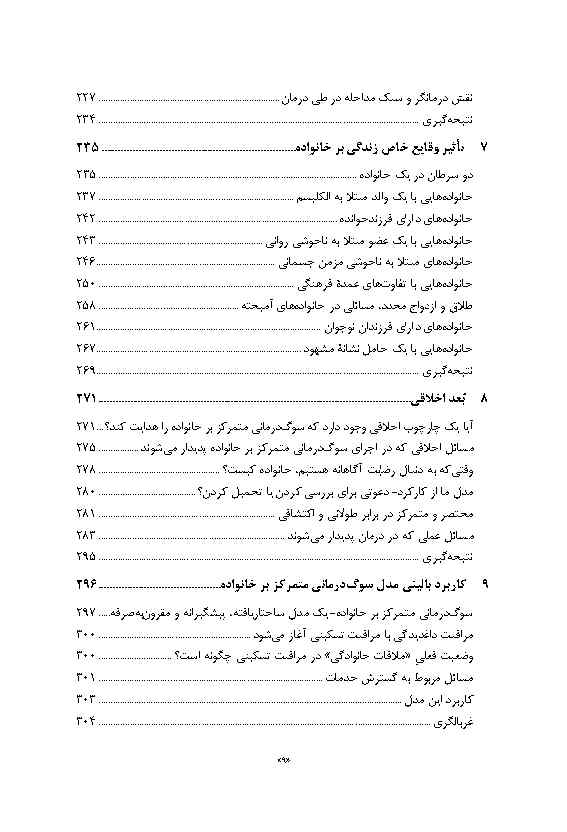 نقش درمانگر و سبک مداخله در طی درمان ........ ۲۲۷
نتیجه‌گیری ........ ۲۳۴
۷ تأثیر وقایع خاص زندگی بر خانواده ........ ۲۳۵
دو سرطان در یک خانواده ........ ۲۳۵
خانواده‌هایی با یک والد مبتلا به الکلیسم ........ ۲۳۷
خانواده‌های دارای فرزندخوانده ........ ۲۴۲
خانواده‌هایی با یک عضو مبتلا به ناخوشی روانی ........ ۲۴۳
خانواده‌های مبتلا به ناخوشی مزمن جسمانی ........ ۲۴۶
خانواده‌هایی با تفاوت‌های عمدۀ فرهنگی ........ ۲۵۰
طلاق و ازدواج مجدد، مسائلی در خانواده‌های آمیخته ........ ۲۵۸
خانواده‌های دارای فرزندان نوجوان ........ ۲۶۱
خانواده‌هایی با یک حامل نشانۀ مشهود ........ ۲۶۷
نتیجه‌گیری ........ ۲۶۹
۸ بُعد اخلاقی ........ ۲۷۱
آیا یک چارچوب اخلاقی وجود دارد که سوگ‌درمانی متمرکز بر خانواده را هدایت کند؟ ... ۲۷۱
مسائل اخلاقی که در اجرای سوگ‌درمانی متمرکز بر خانواده پدیدار می‌شوند ........ ۲۷۵
وقتی‌که به دنبال رضایت آگاهانه هستیم، خانواده کیست؟ ........ ۲۷۸
مدل ما از کارکرد-دعوتی برای بررسی کردن یا تحمیل کردن؟ ........ ۲۸۰
مختصر و متمرکز در برابر طولانی و اکتشافی ........ ۲۸۱
مسائل عملی که در درمان پدیدار می‌شوند ........ ۲۸۳
نتیجه‌گیری ........ ۲۹۵
۹ کاربرد بالینی مدل سوگ‌درمانی متمرکز بر خانواده ........ ۲۹۶
سوگ‌درمانی متمرکز بر خانواده-یک مدل ساختاریافته، پیشگیرانه و مقرون‌به‌صرفه ..... ۲۹۷
مراقبت داغدیدگی با مراقبت تسکینی آغاز می‌شود ........ ۳۰۰
وضعیت فعلیِ «ملاقات خانوادگی» در مراقبت تسکینی چگونه است؟ ........ ۳۰۰
مسائل مربوط به گسترش خدمات ........ ۳۰۱
کاربرد این مدل ........ ۳۰۳
غربالگری ........ ۳۰۴
«۹»